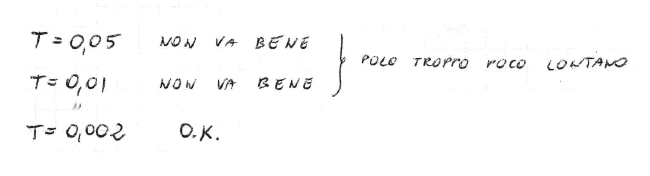 T = 0,05 NON VA BENE
T = 0,01 NON VA BENE } POLO TROPPO POCO LONTANO
T = 0,002 O.K.